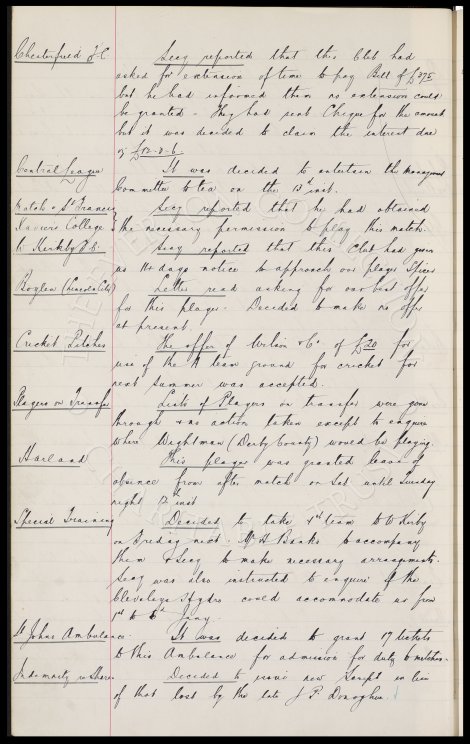 Chesterfield F.C. Secy reported that this Club had
asked for extension of time to pay Bill of £375
but he had informed them no extension could
be granted - They had sent Cheque for the amount
but it was decided to claim the interest due
of £12-8-6.
Central League It was decided to entertain the Management
Committee to tea on the 13 inst.
Match v St Francis Secy reported that he had obtained
Xaviers College the necessary permission to play this match.
W Kirkby F.C. Secy reported that this Club had given
us 14 days notice to approach our player
Boylen (Lincoln City) Letter read asking for our best offer
for this player. Decided to make no offer
at present
Cricket Pitches The offer of Wilson & Co of £20 for
use of the A team ground for cricket for
next summer was accepted.
Players on Transfer Lists of Players on transfer were gone
through & no action taken except to enquire
where Wightman (Derby County) would be playing.
Harland This player was granted leave of
absence from after match on Sat until Tuesday
night 12th inst
Special Training Decided to take 1st team to
on Friday next. Mr A Banks to accompany
them & Secy to make necessary arrangements.
Secy was also instructed to enquire if the
Cleveleys Hydro could accommodate us from
1st to Jany.
St Johns Ambulance. It was decided to grant 17 tickets
to this Ambulance for admission for duty to matches.
Indemnity re Shares Decided to issue new Script in lieu
of that lost by the late J P. Donoghue.